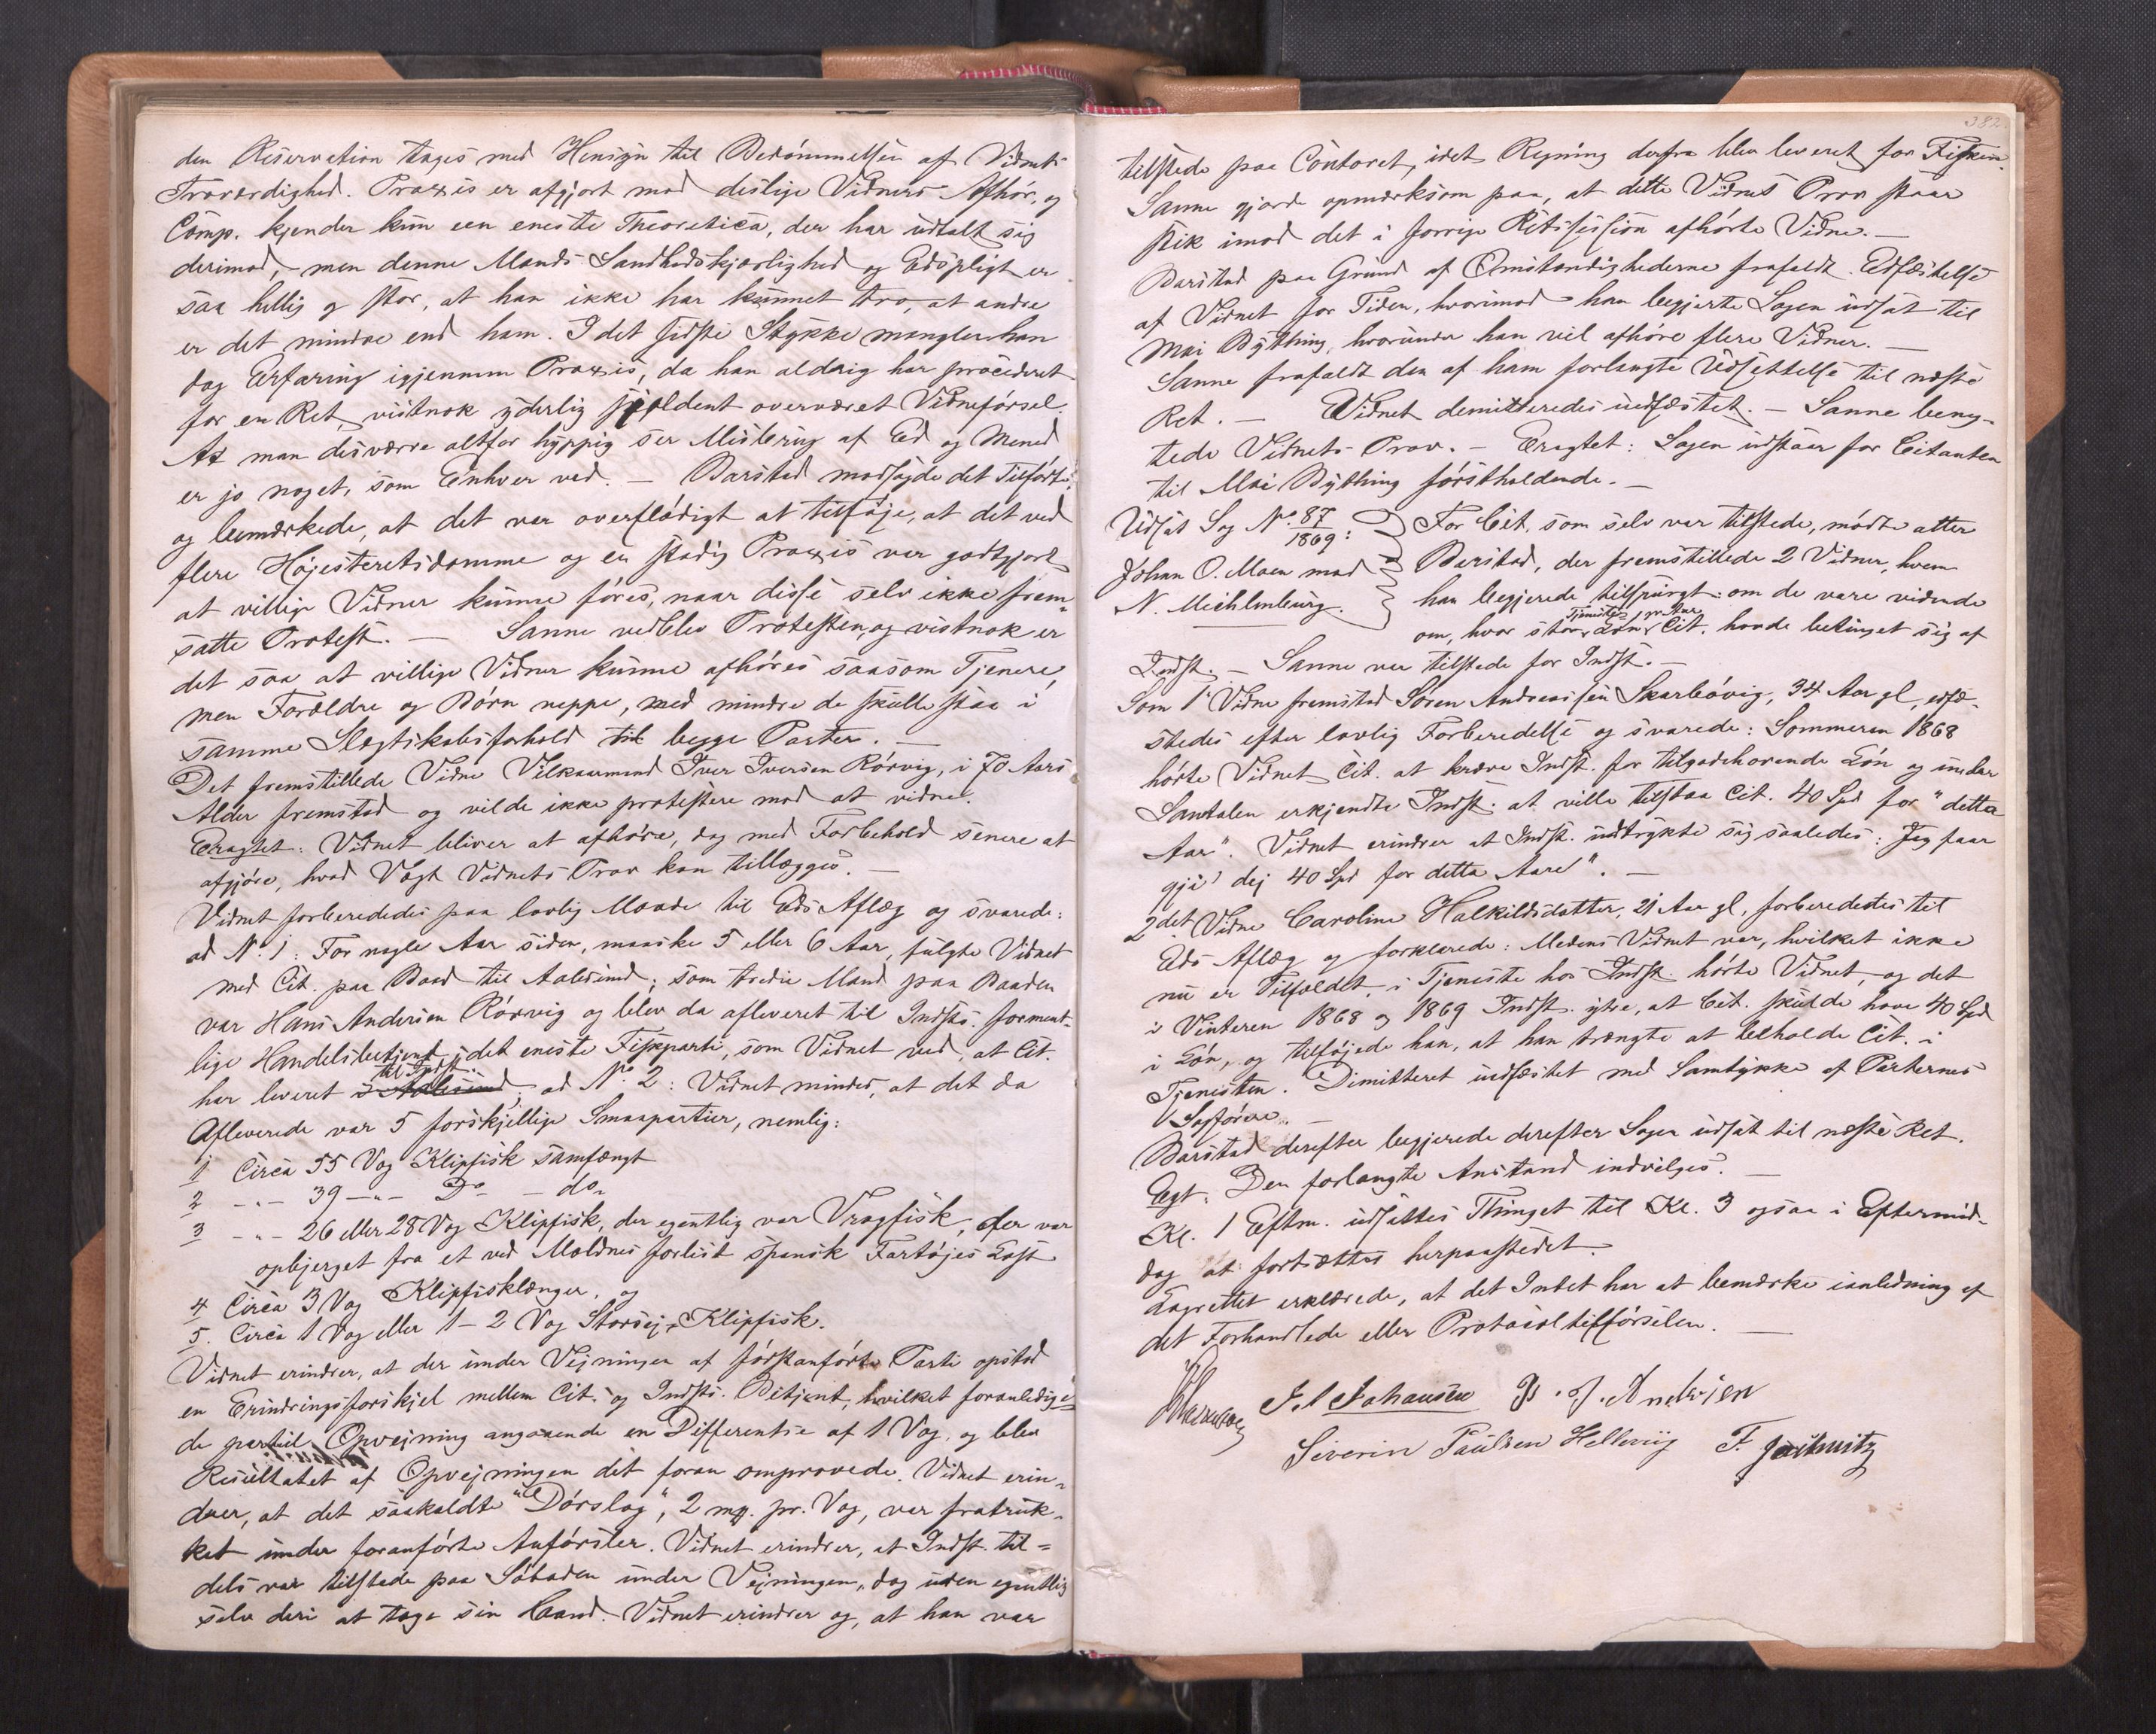 den Reservation tages med Hensyn til Bedømmelsen af Vidnets
Troværdighed. Praxis er afgjort mod deslige Vidners Afhør, og
Comp. kjender kun een eneste Theoretica, der har udtalt sig
derimod, – men denne Mands Sandhedskjærlighed og Edspligt er
saa hellig og stor, at han ikke har kunnet tro, at andre
er det mindre end ham. I det sidste Stykke mangler han
dog Erfaring igjennem Praxis, da han aldrig har procederet
for en Ret, vistnok yderlig sjeldent overværet Vidneførsel.
At man desværre altfor hyppig ser Misbrug af Ed og Mened
er jo noget, som Enhver ved. – Barstad modsagde det Tilførte,
og bemærkede, at det var overflødigt at tilføje, at det ved
flere Højesteretsdomme og en stadig Praxis var godtgjort
at villige Vidner kunne føres, naar disse selv ikke frem-
satte Protest. – Sanne vedblev Protesten, og vistnok er
det saa at villige Vidner kunne afhøres saasom Tjenere,
men Forældre og Børn neppe, med mindre de skulle staa i
samme Slægtskabsforhold til begge Parter. –
Det fremstillede Vidne Vilkaarmand Iver Iversen Rørvig, i 70 Aars
Alder fremstod og vilde ikke protestere mod at vidne.
Eragtet: Vidnet bliver at afhøre, dog med Forbehold senere at
afgjøre, hvad Vægt Vidnets Prov kan tillægges. –
Vidnet forberededes paa lovlig Maade til Eds Aflæg og svarede:
ad No. 1: For nogle Aar siden, maaske 5 eller 6 Aar, fulgte Vidnet
med Cit. paa Baad til Aalesund; som tredie Mand paa Baaden
var Hans Andersen Rørvig og blev da afleveret til Indsts. forment-
lige Handelsbetjent, det eneste Fiskparti, som Vidnet ved, at Cit.
har leveret til Indst. i Aalesund; ad No. 2: Vidnet mindes, at det da
Afleverede var 5 forskjellige Smaapartier, nemlig:
1 Circa 55 Vog Klipfisk samfængt
2 – „ – 39 – „ – Do – do
3 – „ – 26 eller 28 Vog Klipfisk, der egentlig var Vragfisk, der var
opbjerget fra et ved Moldnes forlist spansk Fartøjes Last
4 Circa 3 Vog Klipfisklænger, og
5. Circa 1 Vog eller 1 – 2 Vog Storsej-Klipfisk.
Vidnet erindrer, at der under Vejningen af førstanførte Parti opstod
en Erindringsforskjel mellem Cit. og Indsts. Betjent, hvilket foranledige-
de partiel Opvejning angaaende en Differentse af 1 Vog, og blev
Resultatet af Opvejningen det foran omprovede. Vidnet erin-
drer, at det saakaldte "Dørslag", 2 mg. pr. Vog, var fratruk-
ket under foranførte Anførsler. Vidnet erindrer, at Indst. til-
dels var tilstede paa Søboden under Vejningen, dog uden egentlig
selv deri at tage sin Haand. Vidnet erindrer og, at han var
382
tilstede paa Contoret, idet Regning derfra blev leveret for Fisken.
Sanne gjorde opmærksom paa, at dette Vidnes Prov staar
stik imod det i forrige Retssession afhørte Vidne. –
Barstad paa Grund af Omstændighederne frafaldt Edfæstelse
af Vidnet for Tiden, hvorimod han begjærte Sagen udsat til
Mai Bything, hvorunder han vil afhøre flere Vidner. –
Sanne frafaldt den af ham forlangte Udsættelse til næste
Ret. – Vidnet demitteredes uedfæstet. – Sanne beny-
tede Vidnets Prov. – Eragtet: Sagen udstaar for Citanten
til Mai Bything førstholdende. –
Udsat Sag No. 87/1869:
Johan O. Moen mod
N. Michlenburg.
For Cit. som selv var tilstede, mødte atter
Barstad, der fremstillede 2 Vidner, hvem
han begjerede tilspurgt: om de vare vidende
om, hvor stor Tjeneste-Løn pr. Aar Cit. havde betinget sig af
Indst. – Sanne var tilstede for Indst. –
Som 1e Vidne fremstod Søren Andreassen Skarbøvig, 34 Aar gl., edfæ-
stedes efter lovlig Forberedelse og svarede: Sommeren 1868
hørte Vidnet Cit. at kræve Indst. for tilgodehavende Løn og under
Samtalen erkjendte Indst. at ville tilstaa Cit. 40 Spd for "dette
Aar". Vidnet erindrer at Indst. udtrykte sig saaledes: Jeg faar
gje' dej 40 Spd for detta Aare". –
2det Vidne Caroline Halkildsdatter, 21 Aar gl., forberededes til
Eds Aflæg og forklarede: Medens Vidnet var, hvilket ikke
nu er Tilfældet, i Tjeneste hos Indst. hørte Vidnet, og det
i Vinteren 1868 og 1869 Indst. ytre, at Cit. skulde have 40 Spd
i Løn, og tilføjede han, at han trængte at beholde Cit. i
Tjenesten. Dimitteret uedfæstet med Samtykke af Parternes
Sagførere. –
Barstad derefter begjerede derefter Sagen udsat til næste Ret.
Egt: Den forlangte Anstand indvilges. –
Kl. 1 Eftm. udsattes Thinget til Kl. 3 ogsaa i Eftermid-
dag at fortsættes herpaastedet.
Lagrettet erklærede, at det Intet har at bemærke ianledning af
det Forhandlede eller Protocoltilførselen. –
J. A Johansen P. J. Andersen
Severin Paulsen Hellevig